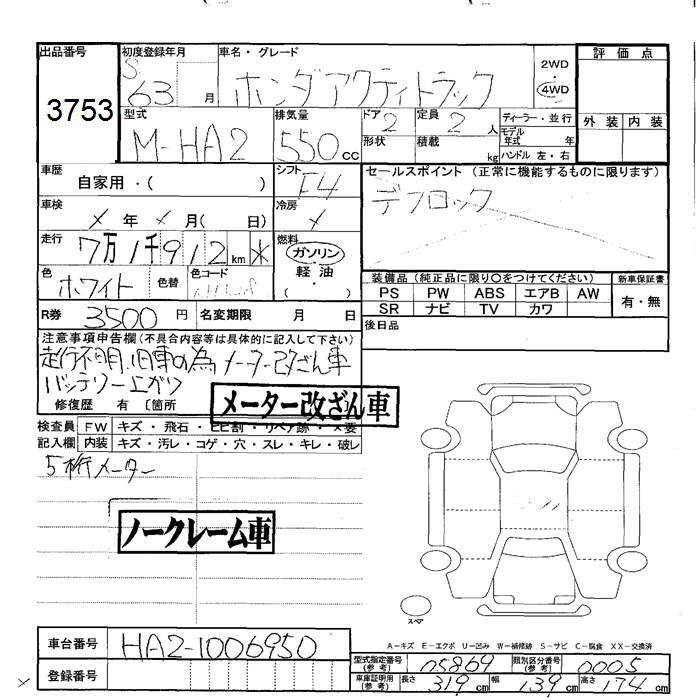 出品番号 初度登録年月 車名・グレード 評価点
3753 S 63 月 ホンダアクティトラック 2WD 4WD
外装 内装
型式 排気量 ドア 定員 ディーラー・並行
M-HA2 550 cc 2 2 人 モデル年式 年
形状 積載 kg ハンドル 左・右
車歴 シフト セールスポイント (正常に機能するものに限ります)
自家用・( ) F4 デフロック
車検 冷房
× 年 × 月( 日) ×
走行 燃料
7万1千912 km ※ ガソリン
軽油・
( )
色 色替 色コード 装備品(純正品に限り〇をつけてください) 新車保証書
ホワイト PS PW ABS エアB AW 有・無
SR ナビ TV カワ
R券 3500 円 名変期限 月 日 後日品
注意事項申告欄(不具合内容等は具体的に記入して下さい)
走行不明、旧車の為メーター改ざん車
バッテリー上がり
修復歴 有 〔箇所
メーター改ざん車
検査員 FW キズ・飛石・ヒビ割・リペア跡・×要
記入欄 内装 キズ・汚レ・コゲ・穴・スレ・キレ・破レ
5桁メーター
ノークレーム車
スペア
A-キズ E-エクボ U-凹み W-補修跡 S-サビ C-腐食 XX-交換済
車台番号 HA2-1006950
型式指定番号(参考) 05869 類別区分番号(参考) 0005
登録番号 車庫証明用(参考) 長さ 319 cm 幅 139 cm 高さ 174 cm